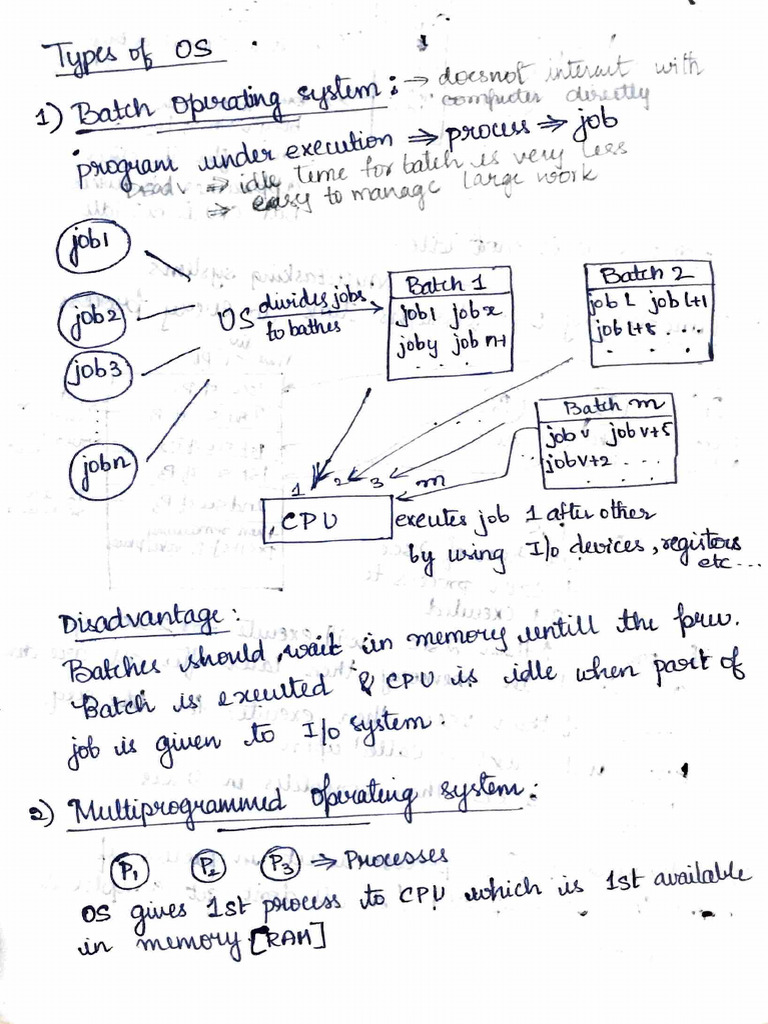 Types of OS
1) Batch Operating System : → doesnot interact with
computer directly
program under execution ⇒ process ⇒ job
Disadv ⇒ idle time for batch is very less
⇒ easy to manage large work
job1
job2
job3
jobn
OS divides jobs
to bathes
Batch 1
job1 jobx
joby job n+1
. . .
Batch 2
job l job l+1
job l+5 ...
. . .
Batch m
job v job v+5
job v+2 ...
1 2 3 m
CPU
executes job 1 after other
by using I/o devices, registors
etc...
Disadvantage :
Batches should wait in memory untill the prev.
Batch is executed & CPU is idle when part of
job is given to I/o system.
2) Multiprogrammed Operating system :
P1 P2 P3 ⇒ Processes
OS gives 1st process to CPU which is 1st available
in memory [RAM]